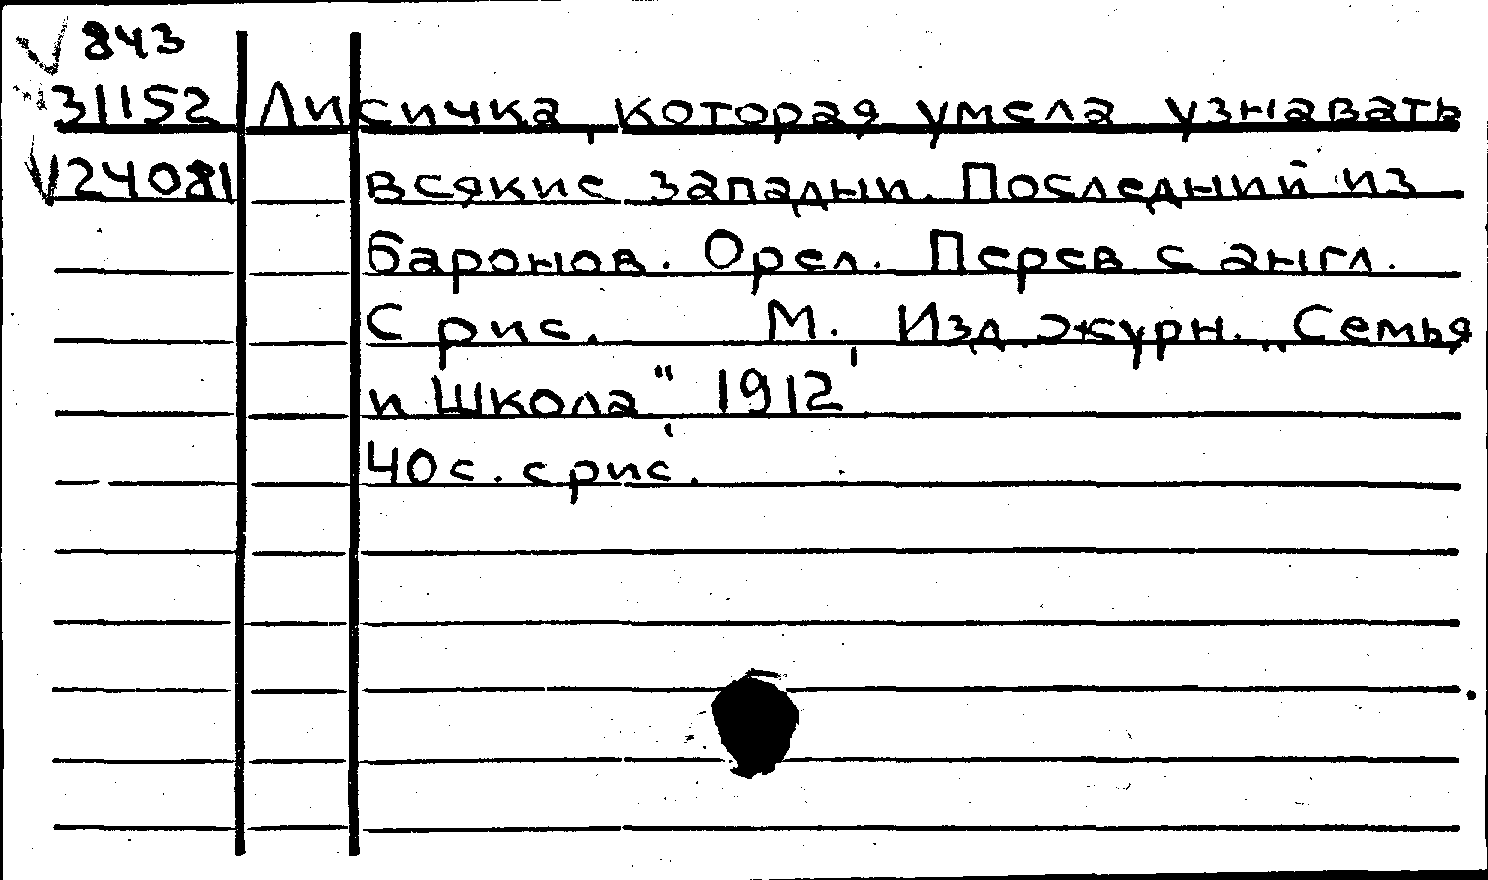 √843
31152 Лисичка, которая умела узнавать
√24081 всякие западни. Последний из
баронов. Орел. Перев с англ.
С рис. М., Изд. журн. „Семья
и Школа", 1912
40 с. с рис.